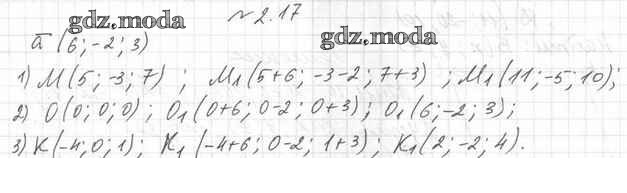 gdz.moda № 2.17
ā (6; -2; 3) gdz.moda
1) M(5; -3; 7) ; M₁(5+6; -3-2; 7+3) ; M₁(11; -5; 10);
2) O(0; 0; 0) ; O₁(0+6; 0-2; 0+3) ; O₁(6; -2; 3);
3) K(-4; 0; 1) ; K₁(-4+6; 0-2; 1+3) ; K₁(2; -2; 4).